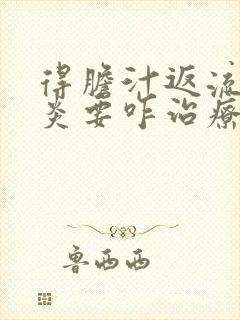 得膽汁返流
炎要咋治療
鲁西西